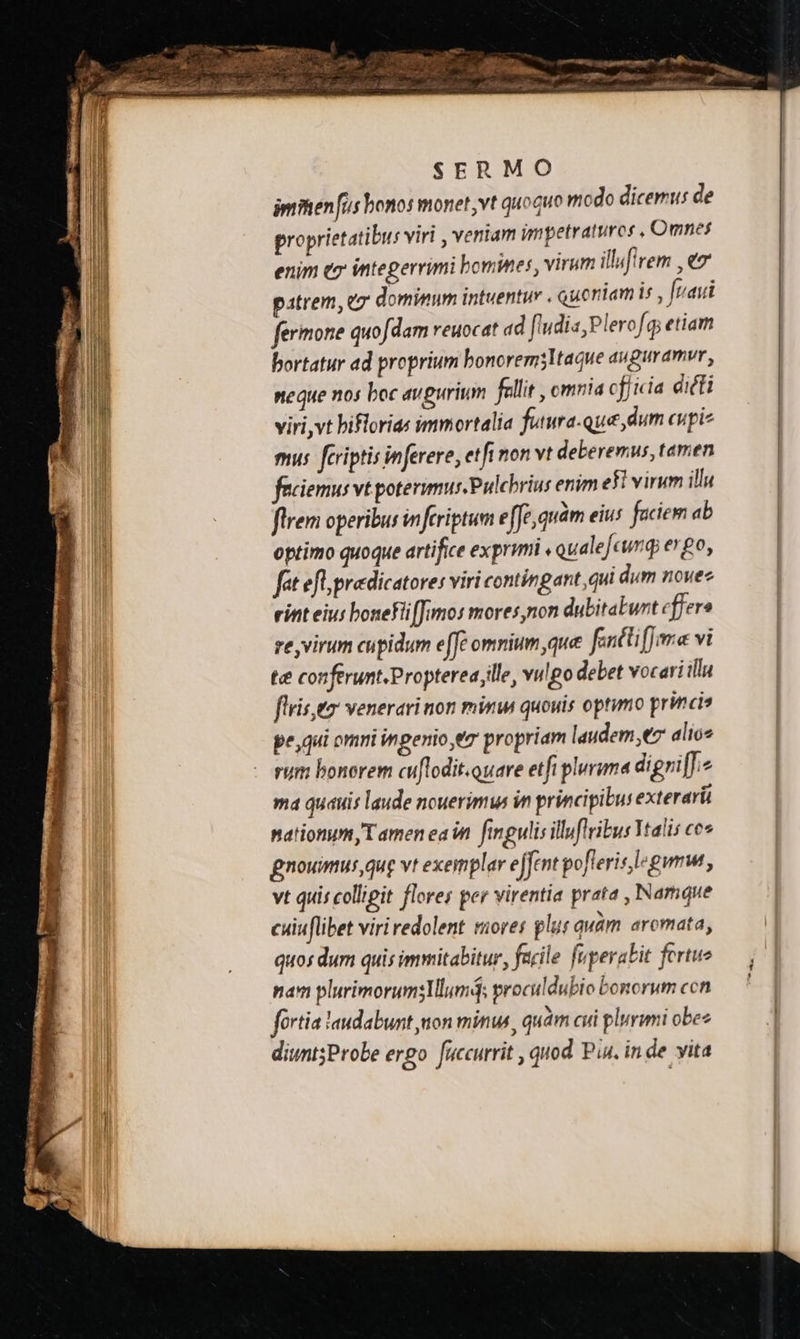 SERMO
immenſus honos monet, vt quoquo modo dicemus de
proprietatibus viri , veniam impetraturos . Omnes
enim & integerrimi homines, virum illuſtrem , &
patrem, & dominum intuentur . quoniam is , ſuaui
ſermone quoſdam reuocat ad ſtudia, Pleroſq; etiam
hortatur ad proprium honorem; Itaque auguramur,
neque nos hoc augurium fallit , omnia officia dicti
viri, vt hiſtorias immortalia futura. quæ, dum cupi-
mus ſcriptis inſerere, etſi non vt deberemus, tamen
faciemus vt poterimus. Pulchrius enim eſt virum illu
ſtrem operibus inſcriptum eſſe, quàm eius faciem ab
optimo quoque artifice exprimi . qualeſcunq; ergo,
ſat eſt, prædicatores viri contingant, qui dum noue-
rint eius honeſtiſſimos mores, non dubitabunt effer-
re, virum cupidum eſſe omnium, quæ ſanctiſſimæ vi
tæ conferunt. Propterea, ille, vulgo debet vocari illu
ſtris, & venerari non minus quouis optimo princi-
pe, qui omni ingenio, & propriam laudem, & alio-
rum honorem cuſtodit. quare etſi plurima digniſſi-
ma quauis laude nouerimus in principibus exterarū
nationum, Tamen ea in ſingulis illuſtribus Italis co-
gnouimus, quę vt exemplar eſſent poſteris, legimus ,
vt quis colligit flores per virentia prata , Namque
cuiuſlibet viri redolent mores plus quàm aromata,
quos dum quis immitabitur, facile ſuperabit fortu-
nam plurimorum; Illumq́; proculdubio bonorum con
ſortia laudabunt, non minus, quàm cui plurimi obe-
diunt; Probe ergo ſuccurrit , quod Piu. in de vita